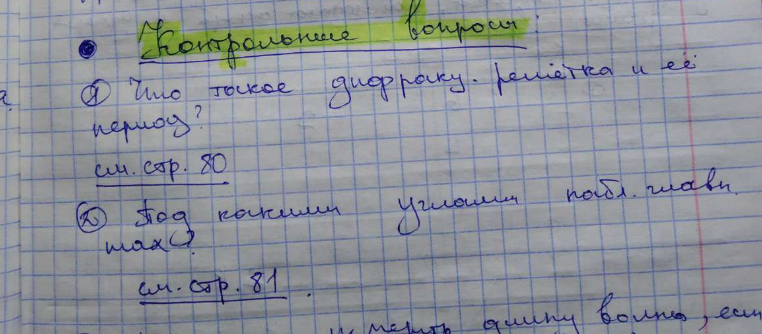 Контрольные вопросы:
① Что такое дифракц. решётка и её
период?
см. стр. 80
② Под какими углами набл. главн.
max?
см. стр. 81.
измерить длину волны, если